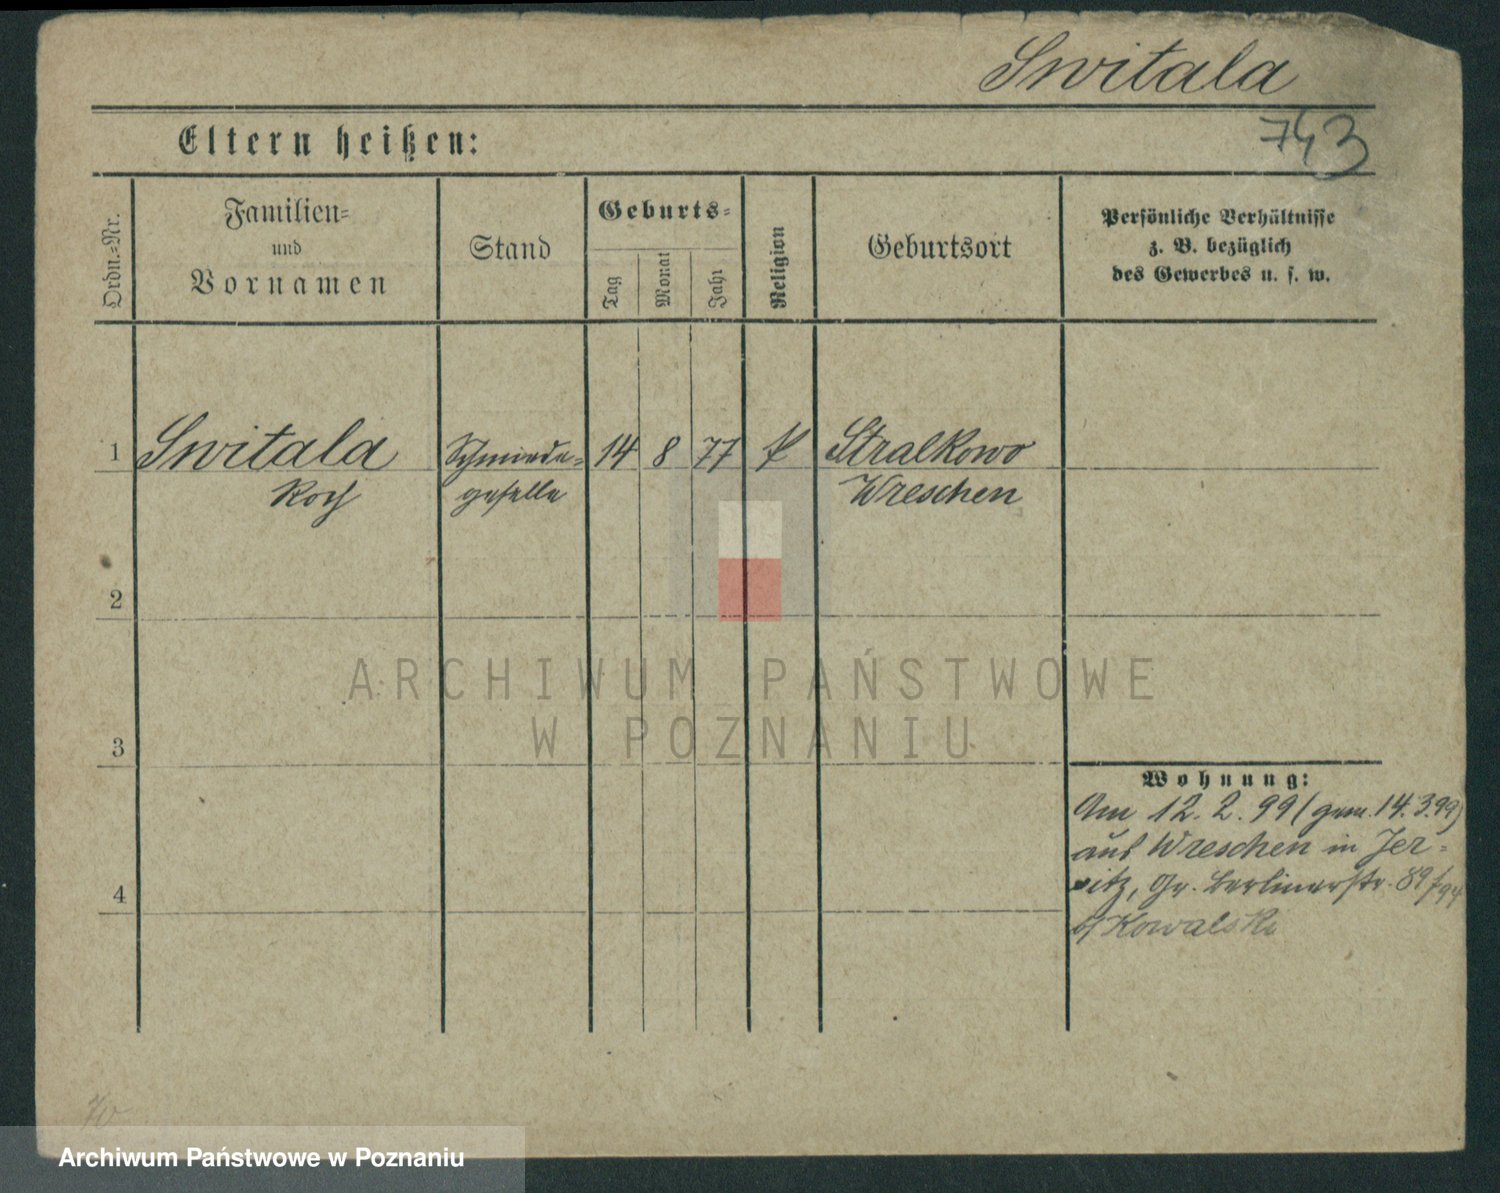 Switala
743
Eltern heißen:
Ordn.=Nr.
Familien=
und
Vornamen
Stand
Geburts=
Tag
Monat
Jahr
Religion
Geburtsort
Persönliche Verhältnisse
z. B. bezüglich
des Gewerbes u. s. w.
1 Switala Schmiede= 14 8 77 k Stralkowo
Roch geselle Wreschen
2
3
4
ARCHIWUM PAŃSTWOWE
W POZNANIU
Wohnung:
Am 12.2.99 (gem. 14.3.99)
aus Wreschen in Jer=
sitz, Gr. Berlinerstr. 89/94
b/ Kowalski
Archiwum Państwowe w Poznaniu